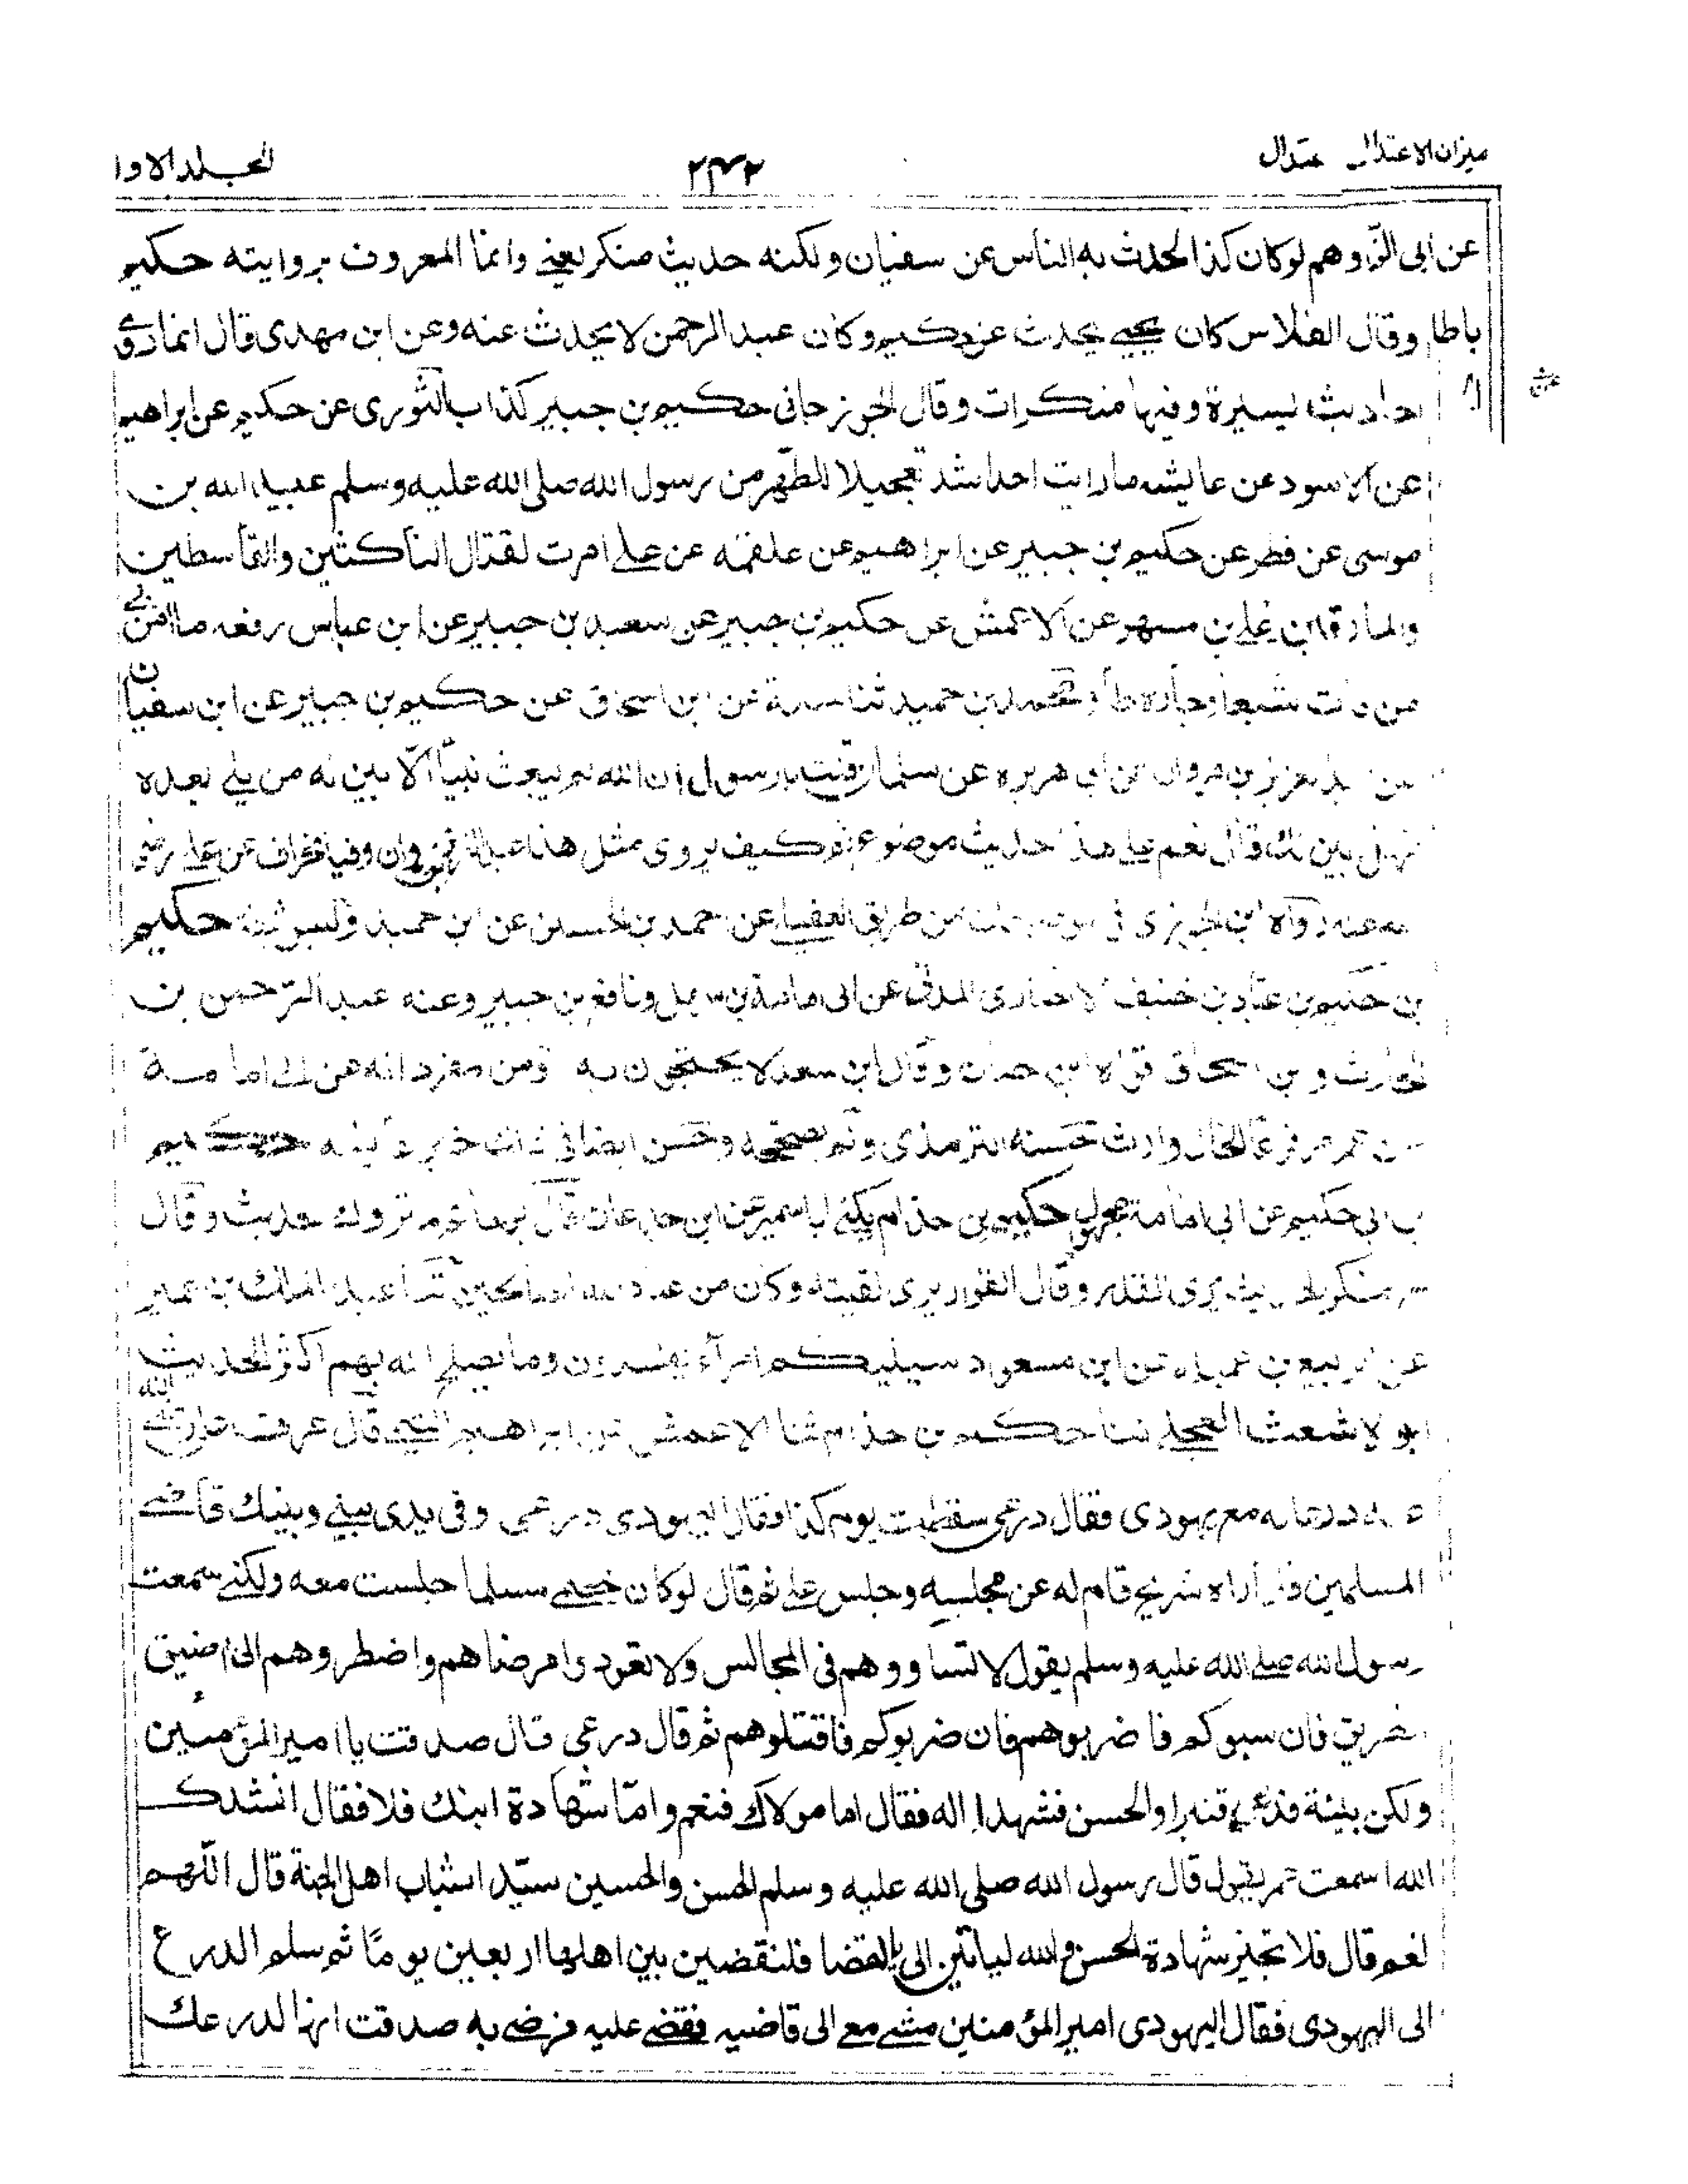 ميزان الاعتدال
٢٤٢
المجلد الاول
عن ابى الزّ وهم لوكان كذا لحدث به الناس عن سفيان ولكنه حديث منكر يعنى وانما المعروف بروايته حكيم
وقال الفلاس كان يحيى يحدث عن حكيم وكان عبد الرحمن لا يحدث عنه وعن ابن مهدى قال انما روى
احاديث يسيرة وفيها منكرات وقال الجوزجانى حكيم بن جبير كذاب الثورى عن حكيم عن ابراهيم
عن الاسود عن عايشه مارايت احدا اشد تعجيلا للظهر من رسول الله صلى الله عليه وسلم عبيد الله بن
موسى عن فطر عن حكيم بن جبير عن ابراهيم عن علقمه عن على امرت لقتال الناكثين والقاسطين
والمارقين على بن مسهر عن الاعمش عن حكيم بن جبير عن سعيد بن جبير عن ابن عباس رفعه ما امن بى
من بات شبعا وجاره محمد بن حميد ثنا سلمة عن ابن اسحاق عن حكيم بن جبير عن ابن سفيان
عن عبد العزيز بن مروان عن ابى هريره عن سلمان قلت يا رسول ان الله لم يبعث نبيّا الّا بين له من يلى بعده
فهل بين لك قال نعم على هذا حديث موضوع كيف يروى مثل هذا عبد العزيز بن مروان وفيه انحراف عن على رضى
الله عنه رواه ابن الجوزى فى من طريق العقيلى عن احمد بن الحسين عن ابن حميد وليس بثقة حكيم
بن حكيم بن عبّاد بن حنيف الانصارى المدنى عن ابى امامة بن سهل ونافع بن جبير وعنه عبد الرّحمن بن
الحارث وبن اسحاق قواه ابن حبان وقال ابن سعد لا يحتجون به ومن مفرداته عن ابى امامـة
عن عمر مرفوعا الخال وارث حسنه الترمذى ولم يصححه وحسن ايضا فى حكيم
بن ابى حكيم عن ابى امامة مجهول حكيم بن حذام يكنى ابا سمير عن ابن جدعان قال ابو حاتم متروك حديث وقال
منكر الحديث يرى القدر وقال القواريرى لقيته وكان من عباد الله الصالحين ثنا عبد الملك بن عمير
عن الربيع بن عميله عن ابن مسعود سيليكم امرآء يفسدون وما يصلح الله بهم اكثر الحديث
ابو الاشعث العجلى ثنا حكيم بن حذام ثنا الاعمش عن ابراهيم التيمى قال عرف على رضى الله
عنه درعا له مع يهودى فقال درعى سقطت يوم كذا فقال اليهودى درعى وفى يدى بينى وبينك قاضى
المسلمين فلما راه شريح قام له عن مجلسه وجلس على ثم قال لو كان خصمى مسلما جلست معه ولكنى سمعت
رسول الله صلى الله عليه وسلم يقول لا تساووهم فى المجالس ولا تعودوا مرضاهم واضطروهم الى اضيق
الطريق فان سبوكم فاضربوهم فان ضربوكم فاقتلوهم ثم قال درعى قال صدقت يا امير المؤمنين
ولكن بينة فدعى قنبرا والحسن فشهدا له فقال اما مولاك فنعم وامّا شهادة ابنك فلا فقال انشدك
الله اسمعت عمر يقول قال رسول الله صلى الله عليه وسلم الحسن والحسين سيّدا شباب اهل الجنة قال اللّهم
نعم قال فلا تجيز شهادة الحسن والله لياتين الى القضا فلنقضين بين اهلها اربعين يومًا ثم سلم الدرع
الى اليهودى فقال اليهودى امير المؤمنين مشى معى الى قاضيه فقضى عليه فرضى به صدقت انها لدرعك